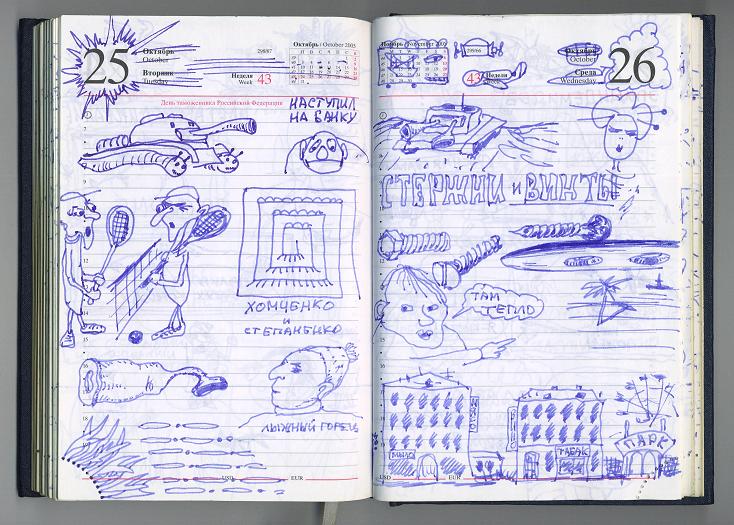 25
Октябрь
October
Вторник
Tuesday
298/67
Неделя
Week
43
Октябрь / October 2005
День таможенника Российской Федерации
НАСТУПИЛ
НА БАНКУ
ХОМЧЕНКО
и
СТЕПАНЕНКО
ЛЫЖНЫЙ ГОРЕЦЬ
USD
EUR
Ноябрь / November 2005
299/66
43
Неделя
Октябрь
October
Среда
Wednesday
26
СТЕРЖНИ и ВИНТЫ
ТАМ
ТЕПЛО
МЫЛО
ТАБАК
ПАРК
USD
EUR